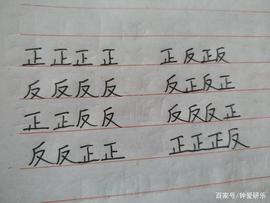 正正正正 正反正反
反反反反 反正反正
正正反反 反反反正
反反正正 正正正反
百家号/钟爱研乐